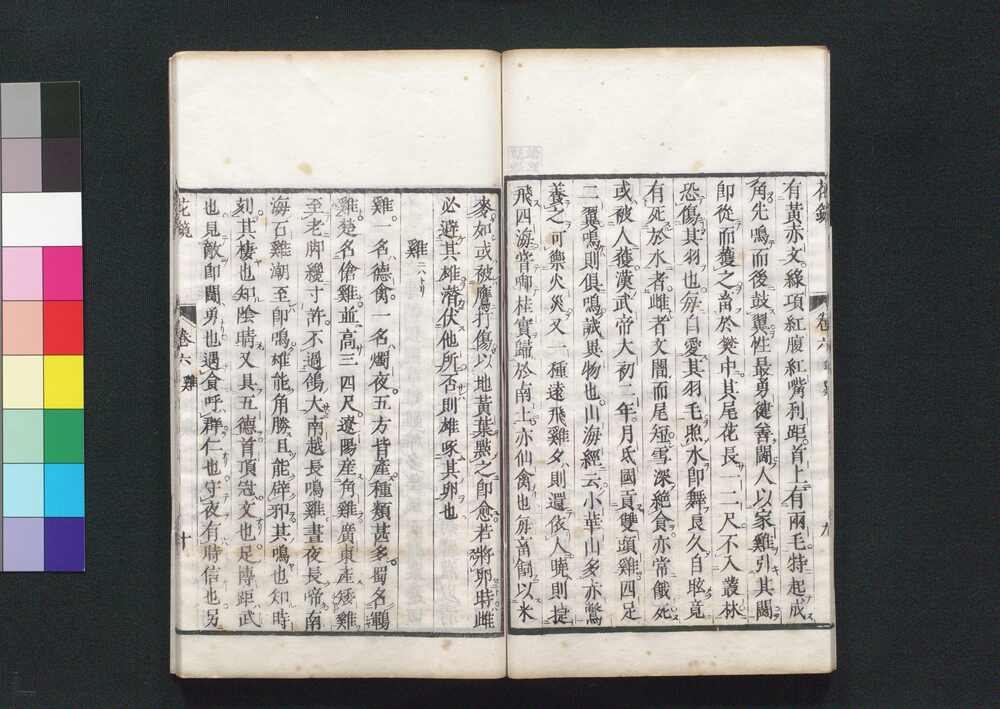 有黃赤文。綠項紅腹紅嘴利距。首上有兩毛特起成
角先鳴而後鼓翼。性最勇健善鬪。人以家雞引其鬪
卽從而獲之。畜於樊中。其尾花長一二尺。不入叢林
恐傷其羽也。每自愛其羽毛。照水卽舞。良久自眩。竟
有死於水者。雌者文闇而尾短。雪深絶食。亦常餓死
或被人獲。漢武帝大初二年。月氐國貢雙頭雞四足
二翼鳴則俱鳴。誠異物也。山海經云。小華山多赤鷩
養之可禦火災。又一種遠飛雞。夕則還依人。曉則
飛四海。嘗啣桂實歸於南土。亦仙禽也。每畜飼以米
麥。如或被鷹打傷。以地黃葉㸃之卽愈。若將卵時。雌
必避其雄。潛伏他所。否則雄啄其卵也
雞 ニハトリ
雞。一名德禽。一名燭夜。五方皆產。種類甚多。蜀名鶤
雞。楚名傖雞。並高三四尺。遼陽產角雞。廣東產矮雞
至老脚纔寸許。不過鴿大。南越長鳴雞。晝夜長啼。南
海石雞潮至卽鳴。雄能角勝。且能辟邪。其鳴也知時
刻。其棲也知陰晴。又具五德。首頂冠文也。足傳距武
也。見敵卽鬪勇也。遇食呼群仁也。守夜有時信也。另
花鏡 卷六 雞 十